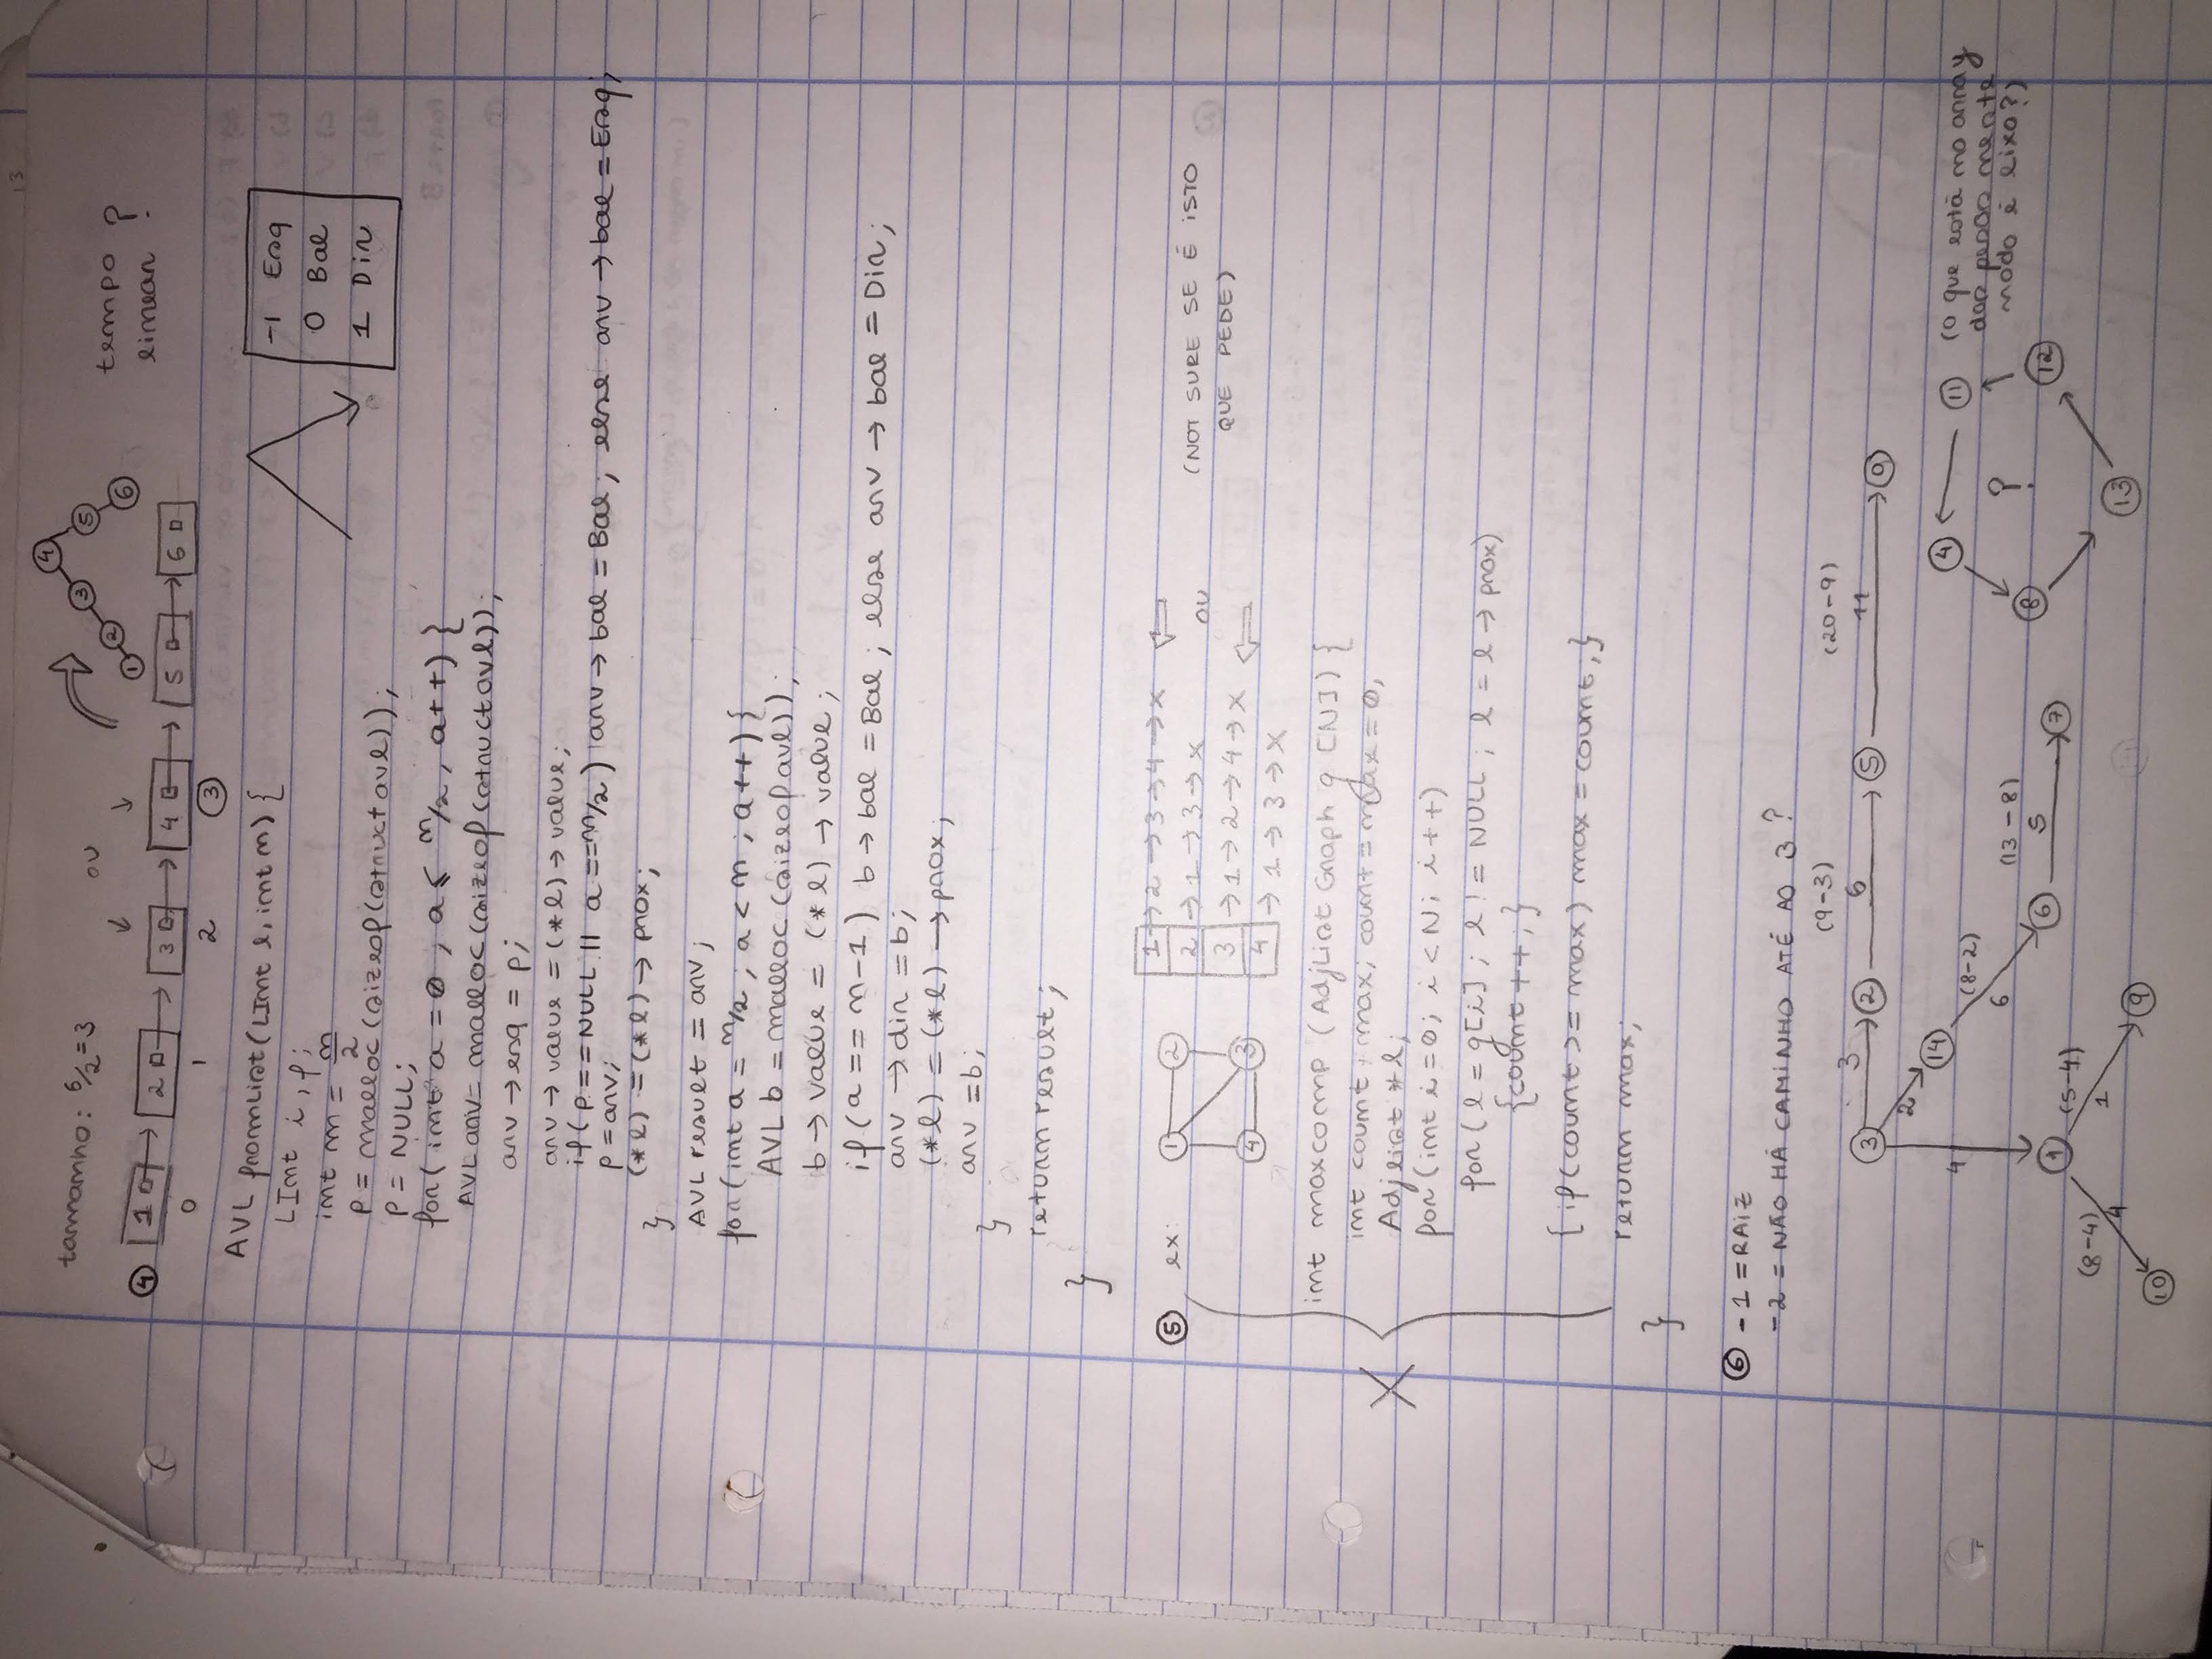 13
tamanho: 6/2=3
ou
④ 1 → 2 → 3 → 4 → 5 → 6
0 1 2 ③
4
3 5
2 6
1
tempo
linear ?
AVL fromList(LInt l, int n) {
LInt i, p;
int m = n/2
p = malloc(sizeof(struct avl));
p = NULL;
for(int a = 0 ; a ≤ n/2, a++) {
AVL arv= malloc(sizeof(struct avl));
arv → esq = p;
arv → value = (*l) → value;
if(p==NULL || a==n/2) arv → bal = Bal; else arv → bal = Esq;
p = arv;
(*l) = (*l) → prox;
}
AVL result = arv;
for(int a = n/2 ; a < n ; a++){
AVL b = malloc(sizeof avl));
b → value = (*l) → value;
if(a == n-1) b → bal = Bal; else arv → bal = Dir;
arv → dir = b;
(*l) = (*l) → prox;
arv = b;
}
return result;
}
-1 Esq
0 Bal
1 Dir
⑤ ex:
1 2
4 3
1 → 2 → 3 → 4 → x
2 → 1 → 3 → x
3 → 1 → 2 → 4 → x
4 → 1 → 3 → x
ou
(NOT SURE SE É ISTO
QUE PEDE)
int maxcomp (AdjList Graph g [N]) {
int count, max; count = max = 0;
Adjlist *l;
for(int i=0; i<N; i++)
for(l = g[i]; l != NULL; l = l → prox)
{count ++;}
{if(count >= max) max = count;}
return max;
}
X
⑥ -1 = RAIZ
-2 = NÃO HÁ CAMINHO ATÉ AO 3 ?
(9-3) (20-9)
3 3 2 6 5 11 0
2 14
4
(8-2)
6
(13-8)
6 5 7
1
(8-4)
4
(5-4)
1
10 9
4 11
8 ? 12
13
(o que está no array
dos pesos neste
modo é lixo?)